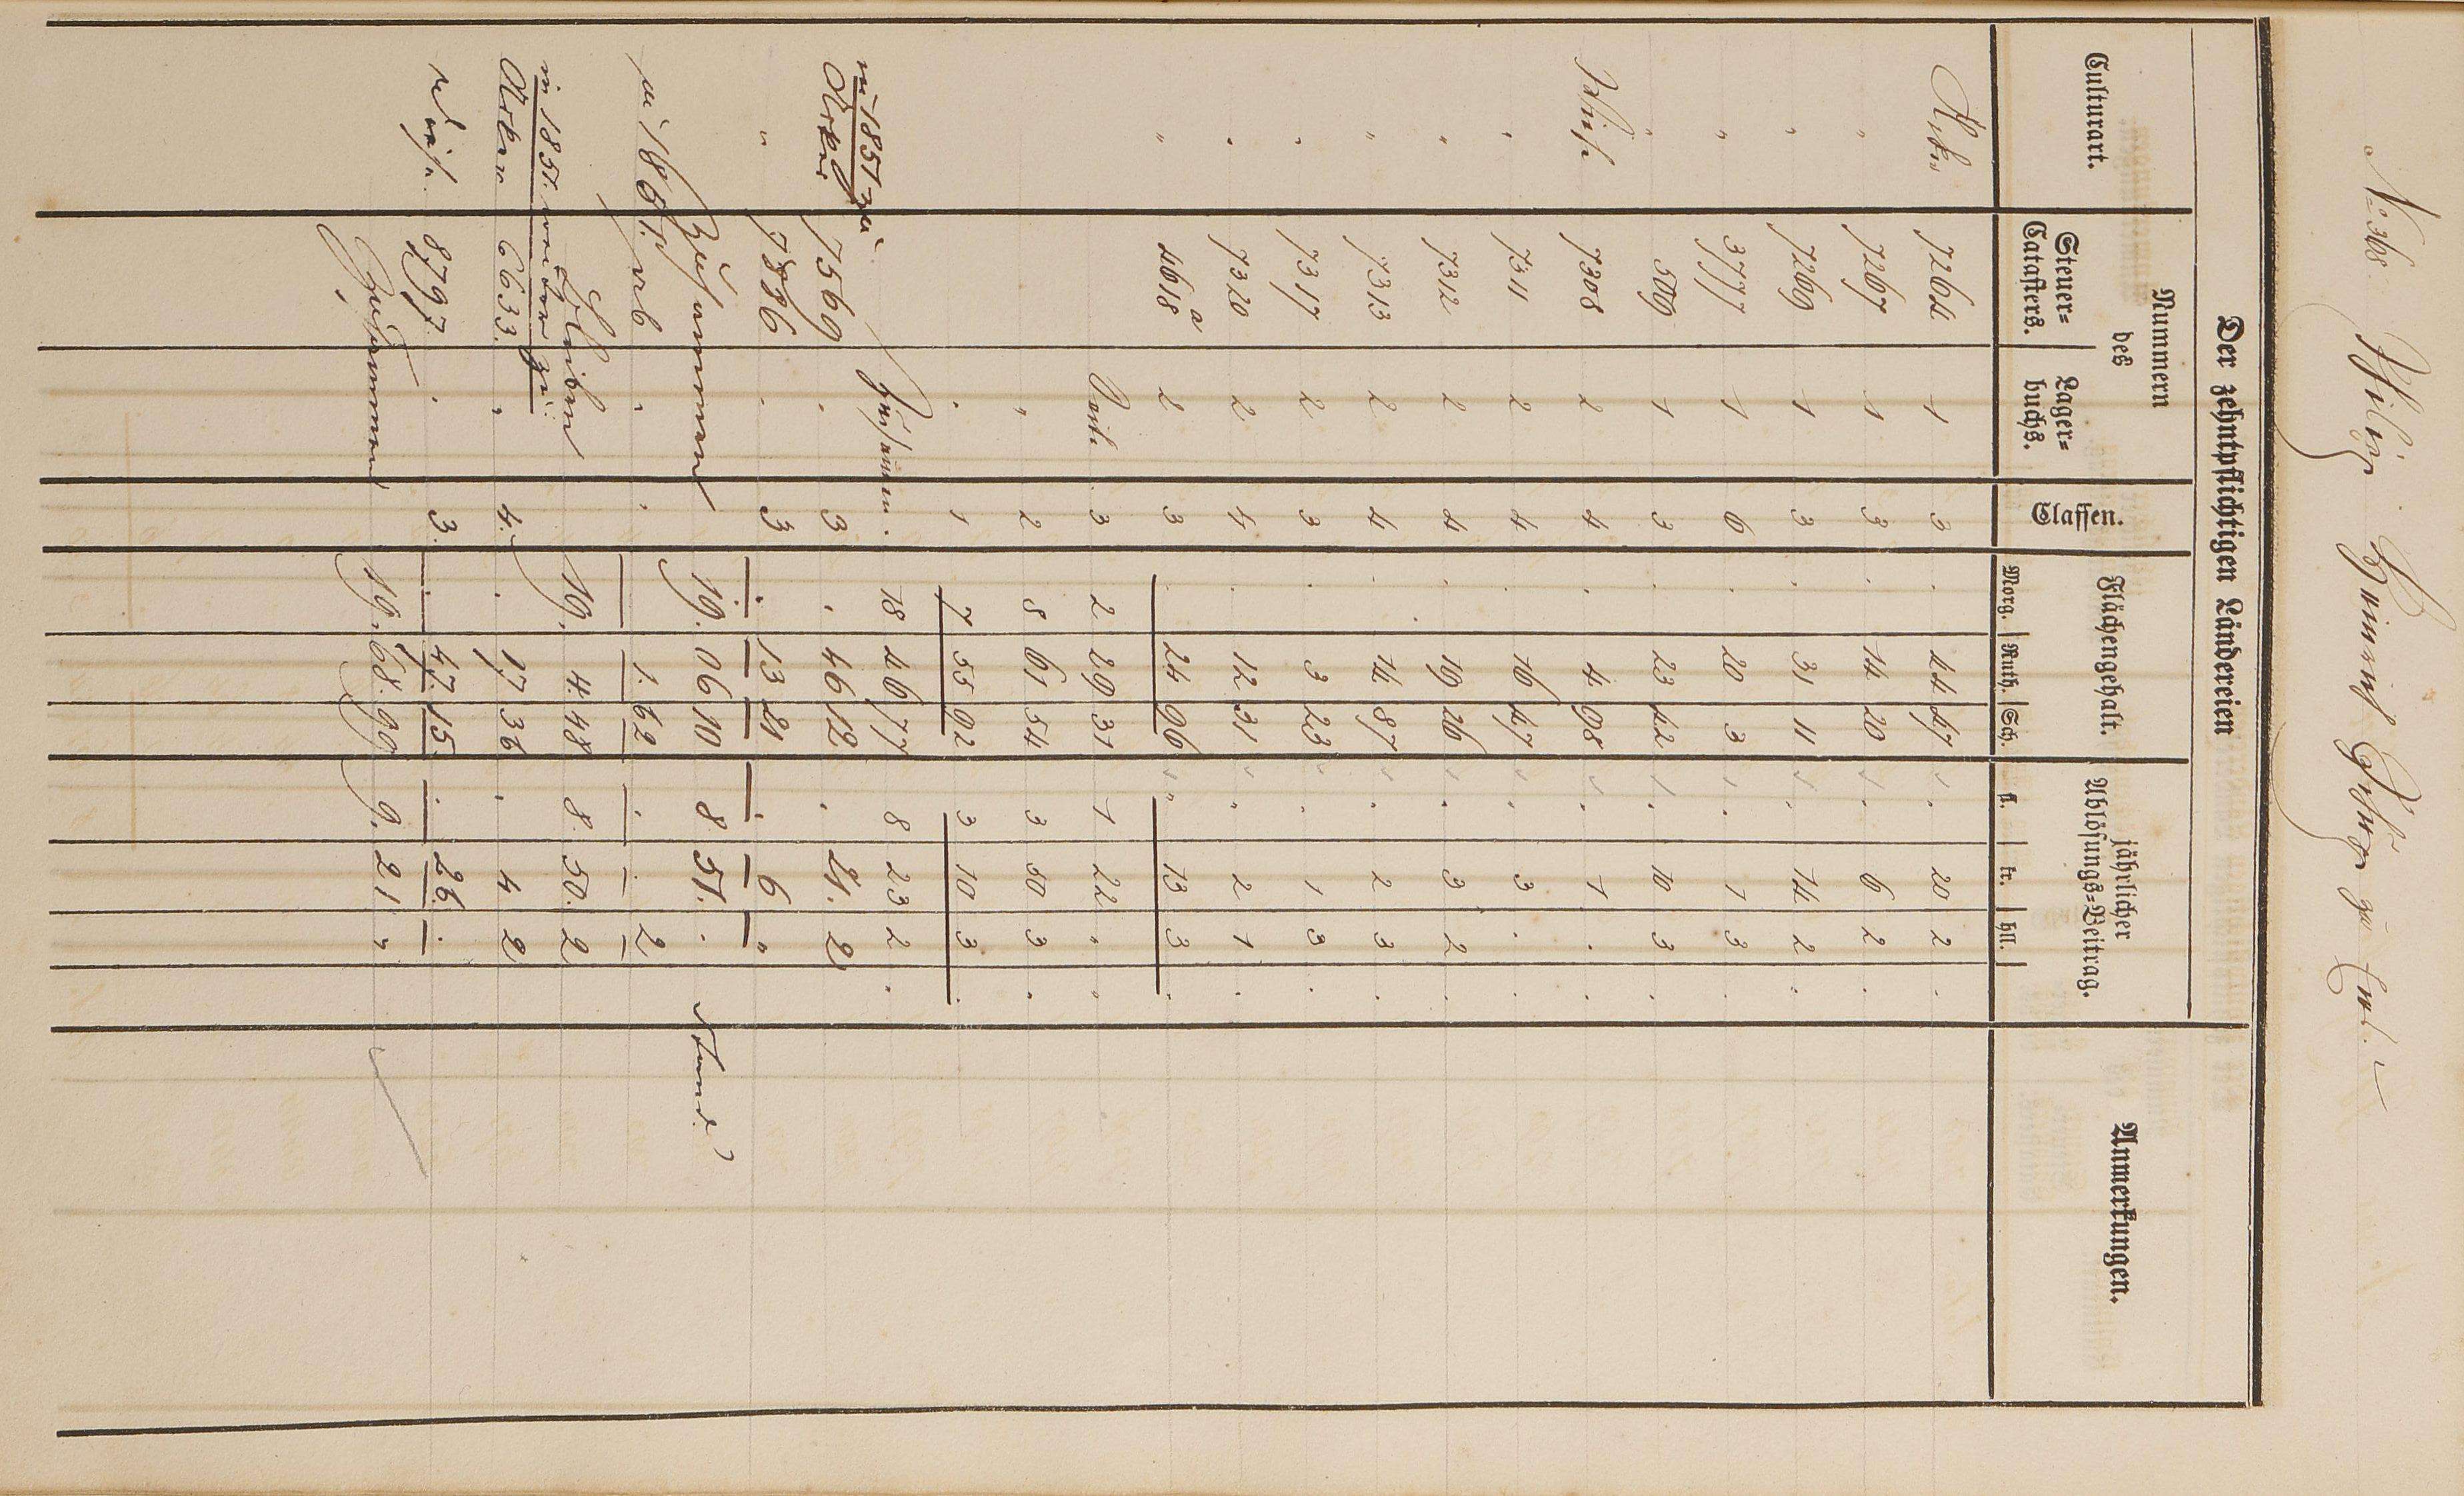 No 368. Philipp Heinrich
Der zehntpflichtigen Ländereien
Culturart.
Nummern des
Steuer-Catasters.
Lager-buchs.
Classen.
Flächengehalt.
Morg. Ruth. Sch.
jährlicher Ablösungs-Beitrag.
fl. kr. hll.
Anmerkungen.
Acker 7264 1 3 . 44 47 . 20 2 .
" 7267 1 3 . 14 20 . 6 2
" 7269 1 3 . 31 11 . 14 2 .
" 3777 1 6 . 20 3 . 1 3 .
" 509 1 3 . 23 42 . 10 3 .
Wiese 7308 2 4 . 4 98 . 1 . .
" 7311 2 4 . 16 47 . 3 . .
" 7312 2 4 . 19 26 . 3 2 .
" 7313 2 4 . 14 87 . 2 3 .
" 7317 2 3 . 3 23 . 1 3 .
" 7320 2 4 . 12 31 . 2 1 .
" 4618 a 2 3 . 24 96 " 13 3 .
3 2 29 31 1 22 " "
" 2 8 61 54 3 50 3 .
. 1 7 55 92 3 10 3 .
Zusammen. 18 46 77 8 23 2 .
in 1851 zu
Acker 7569 . 3 . 46 12 . 21. 2
" 7886 . 3 . 13 21 . 6 "
Zusammen 19. 06 10 8 51. .
in 1861. . . . 1. 62 . . 2
Bleiben 19. 4. 48 8. 50. 2
in 1851. weiter zu
Acker 6633. . 4. . 17 36 . 4 2
Wiese. 8797. . 3. . 47. 15. . 26. .
Zusammen 19. 68. 99 9. 21 "